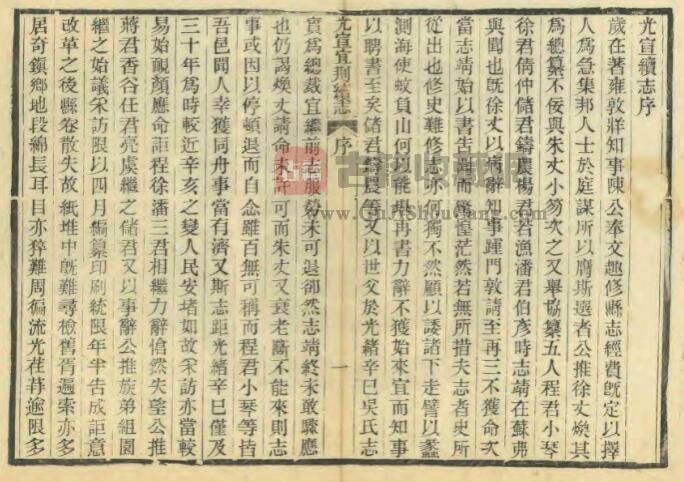 光宣續志序
歲在著雍敦牂知事陳公奉文趣修縣志經費旣定以擇
人為急集邦人士於庭謀所以膺斯選者公推徐丈煥其
為總纂不佞與朱丈小芴次之又舉協纂五人程君小琴
徐君倩仲儲君鑄農楊君若漁潘君伯彥時志靖在蘇弗
與聞也旣徐丈以病辭知事踵門敦請至再三不獲命次
當志靖始以書告聞而驚惶茫然若無所措夫志者史所
從出也修史難修志亦何獨不然顧以諉諸下走譬以蠡
測海使蚊負山何以能堪再書力辭不獲始來宜而知事
以聘書至矣儲君鑄農等又以世父於光緒辛巳吳氏志
光宣宜荊續志 序 一
實為總裁宜繼前志服勞未可退卻然志靖終未敢驟應
也仍謁煥丈請命未許可而朱丈又衰老斷不能來則志
事或因以停頓退而自念雖百無可稱而程君小琴等皆
吾邑聞人幸獲同舟事當有濟又斯志距光緒辛巳僅及
三十年為時較近辛亥之變人民安堵如故采訪亦當較
易始靦顏應命詎程徐潘三君相繼力辭愴然失望公推
蔣君香谷任君亮虞繼之儲君又以事辭公推族弟組園
繼之始議采訪限以四月編纂印刷統限年半告成詎意
改革之後縣卷散失故紙堆中旣難尋檢舊胥遍索亦多
居奇鎮鄉地段綿長耳目亦猝難周徧流光荏苒逾限多
古籍收藏网
www.GuJiShouCang.com